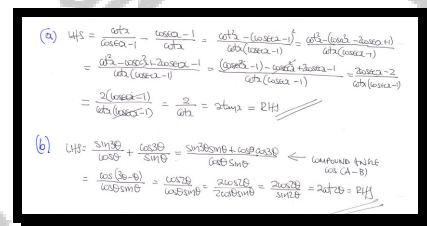 (a) LHS = cotx/(cosecx-1) - (cosecx-1)/cotx = (cot²x-(cosecx-1)²)/(cotx(cosecx-1)) = (cot²x-(cosec²x-2cosecx+1))/(cotx(cosecx-1))
= (cot²x-cosec²x+2cosecx-1)/(cotx(cosecx-1)) = ((cosec²x-1)-cosec²x+2cosecx-1)/(cotx(cosecx-1)) = (2cosecx-2)/(cotx(cosecx-1))
= 2(cosecx-1)/(cotx(cosecx-1)) = 2/cotx = 2tanx = RHS
(b) LHS = sin3θ/cosθ + cos3θ/sinθ = (sin3θsinθ+cosθcos3θ)/(cosθsinθ) ← COMPOUND ANGLE
cos(A-B)
= cos(3θ-θ)/(cosθsinθ) = cos2θ/(cosθsinθ) = 2cos2θ/(2cosθsinθ) = 2cos2θ/sin2θ = 2cot2θ = RHS